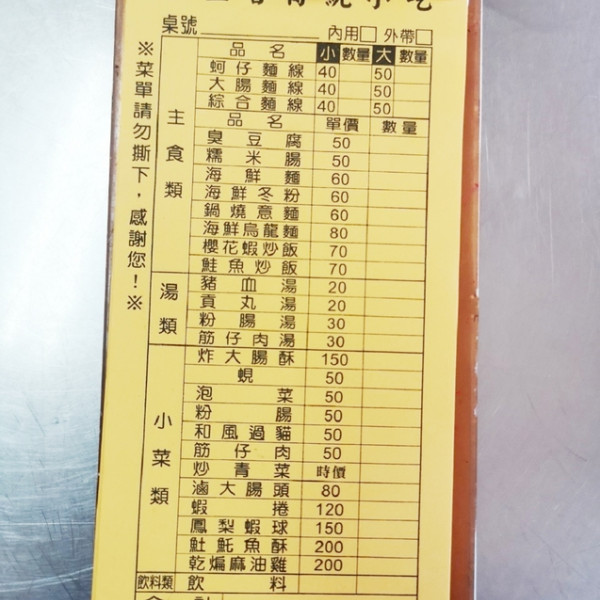 傳統小吃
桌號 內用□ 外帶□
品名 小 數量 大 數量
蚵仔麵線 40 50
大腸麵線 40 50
綜合麵線 40 50
品名 單價 數量
主食類
臭豆腐 50
糯米腸 50
海鮮麵 60
海鮮冬粉 60
鍋燒意麵 60
海鮮烏龍麵 80
櫻花蝦炒飯 70
鮭魚炒飯 70
湯類
豬血湯 20
貢丸湯 20
粉腸湯 30
筋仔肉湯 30
小菜類
炸大腸酥 150
蜆 50
泡菜 50
粉腸 50
和風過貓 50
筋仔肉 50
炒青菜 時價
滷大腸頭 80
蝦捲 120
鳳梨蝦球 150
𩵚魠魚酥 200
乾煸麻油雞 200
飲料類 飲料
合計
※菜單請勿撕下，感謝您！※